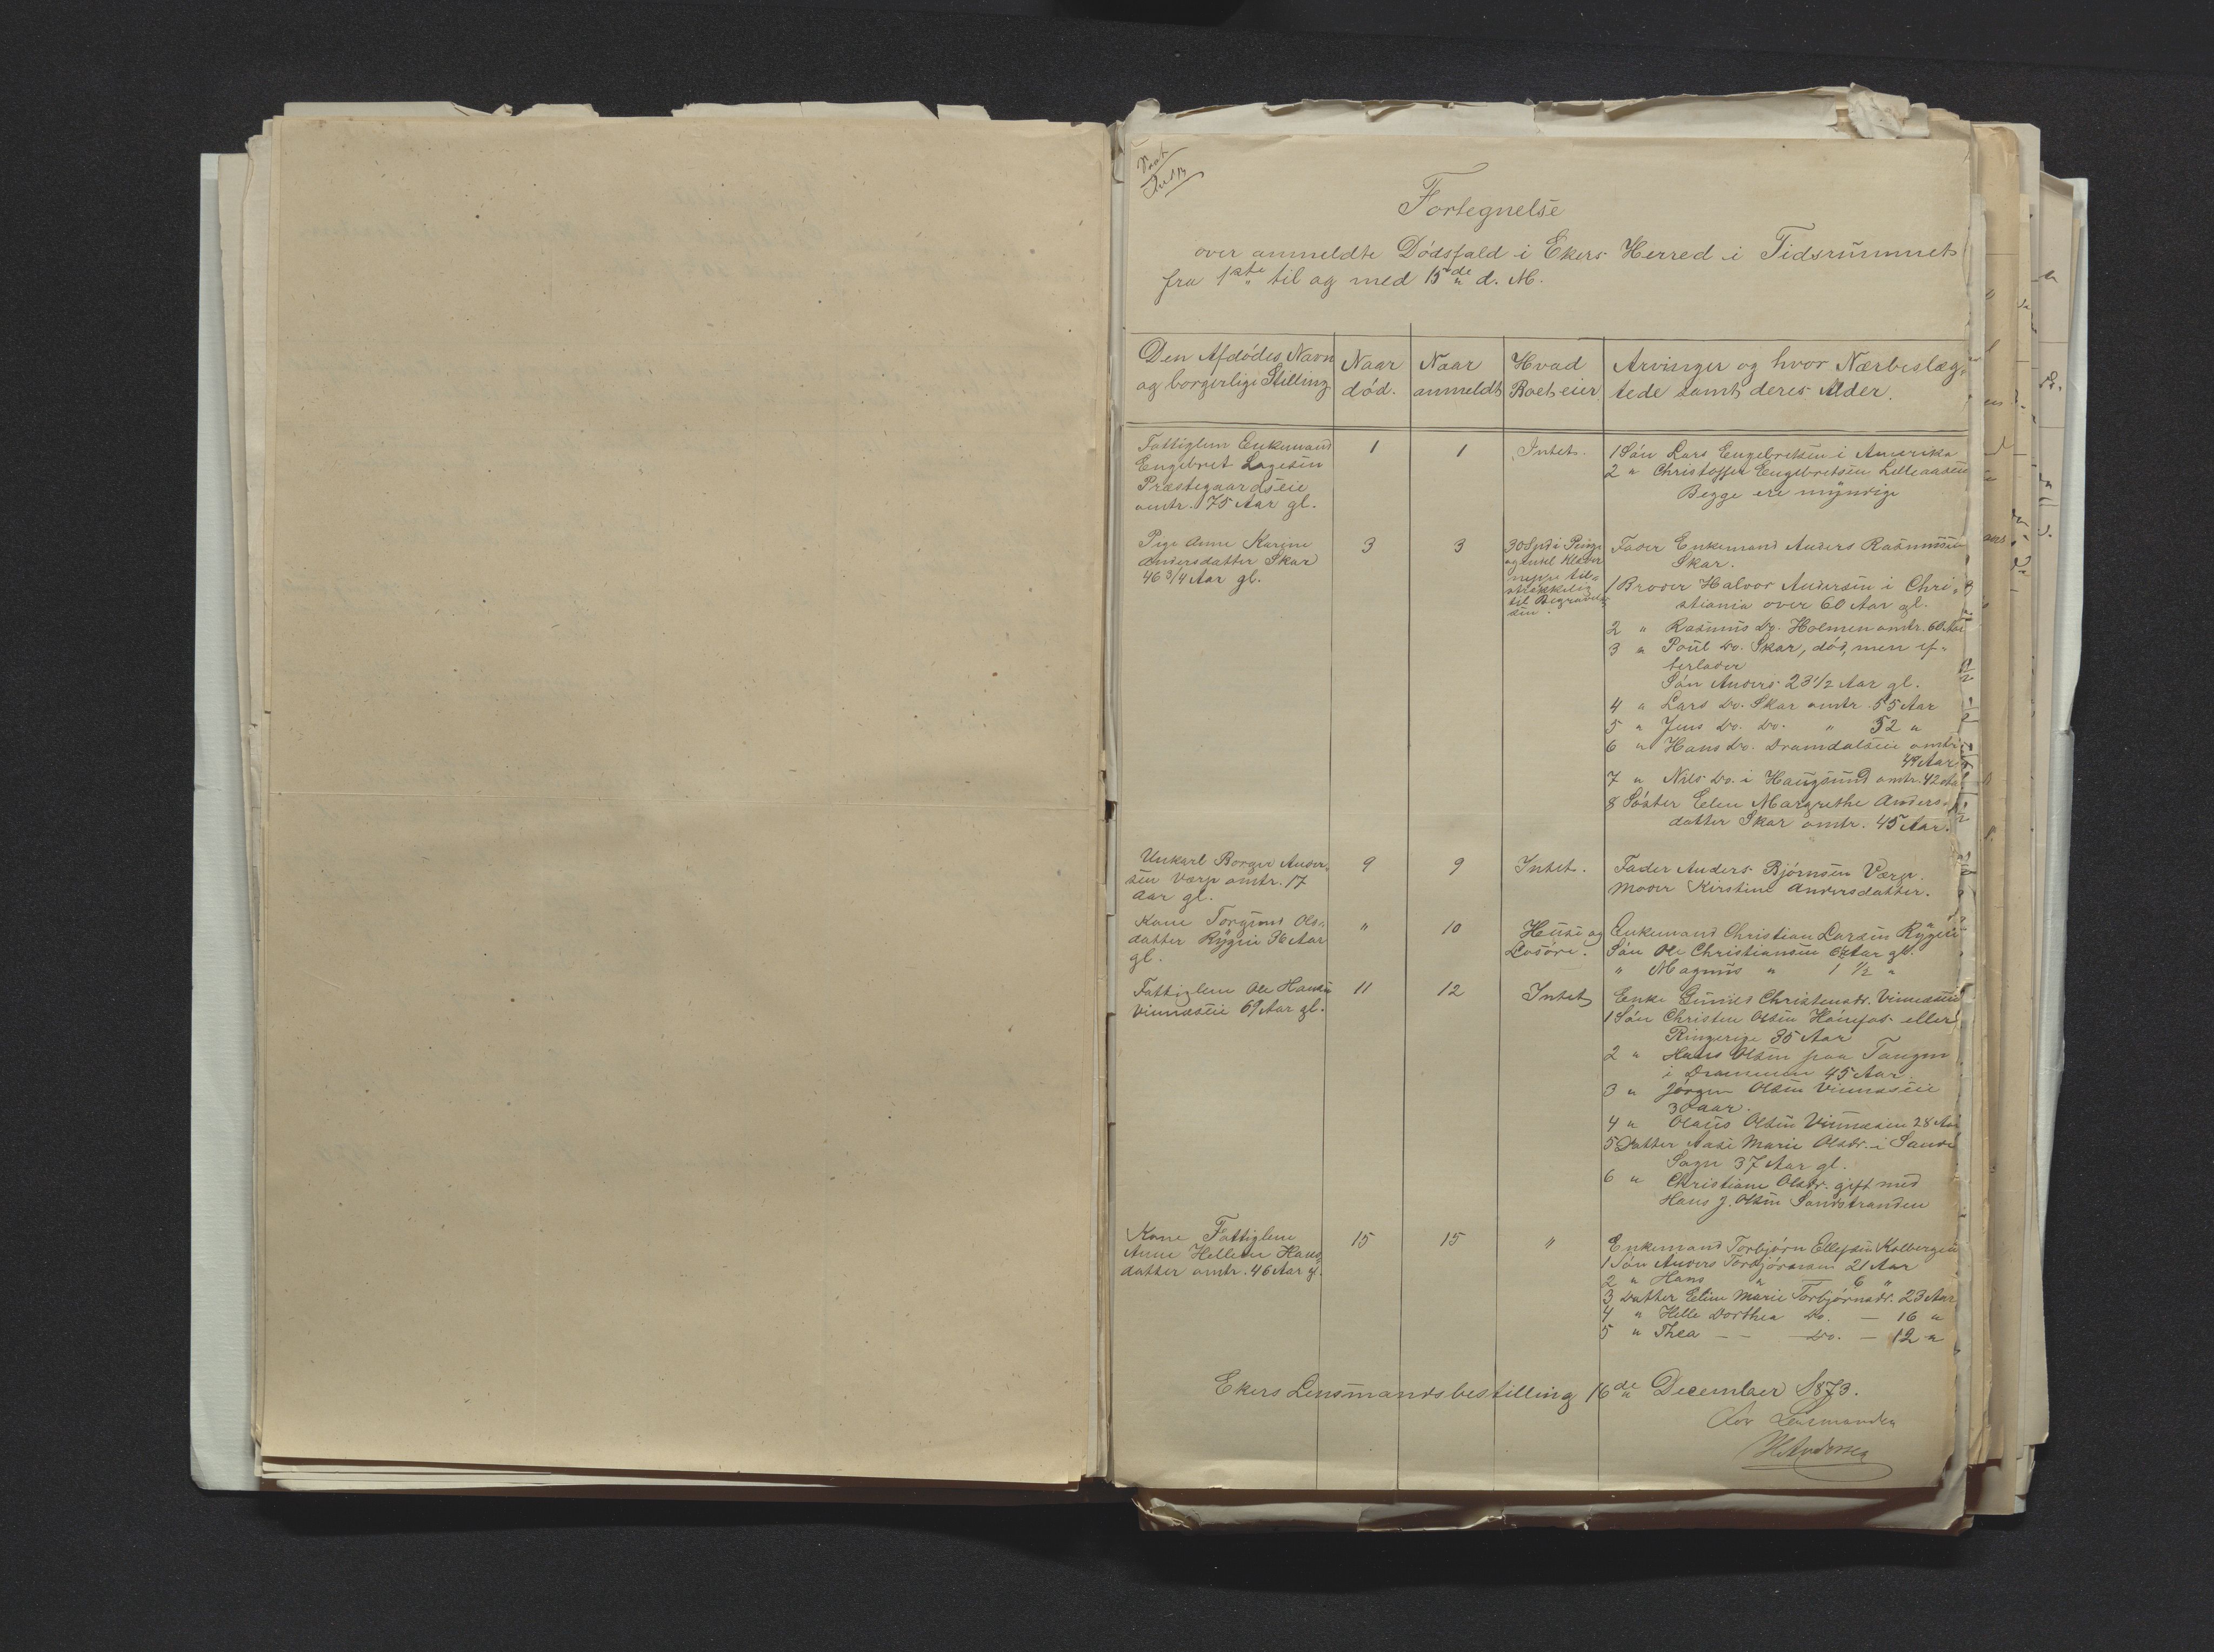 Fortegnelse
over anmeldte Dødsfald i Ekers Herred i Tidsrummet
fra 1ste til og med 15de d. M.
Den Afdødes Navn og borgerlige Stilling
Naar død.
Naar anmeldt
Hvad Boet eier
Arvinger og hvor Nærbeslæg-
tede samt deres Alder.
Fattiglem Enkemand
Engebret Lagesen
Præstegaardseie
omtr. 75 Aar gl.
1
1
Intet.
1 Søn Lars Engebretsen i Amerika
2 " Christoffer Engebretsen Lilleaasen
Begge ere myndige
Pige Anne Karine
Andersdatter Skar
46 3/4 Aar gl.
3
3
30 Spd i Penge
og endel Klæder
neppe til-
strækkelig
til Begravel-
sen.
Fader Enkemand Anders Rasmussen
Skar.
1 Broder Halvor Andersen i Chri-
stiania over 60 Aar gl.
2 " Rasmus Do. Holmen omtr. 60 Aar
3 " Poul Do. Skar, død, men ef-
terlader
Søn Anders 23 1/2 Aar gl.
4 " Lars Do. Skar omtr. 55 Aar
5 " Jens Do. Do. " 52 "
6 " Hans Do. Dramdalseie omtr.
49 Aar
7 " Nils Do. i Haugsund omtr. 42 Aar
8 Søster Elen Margrethe Anders-
datter Skar omtr. 45 Aar.
Unkarl Borger Ander-
sen Værp omtr. 17
Aar gl.
9
9
Intet.
Fader Anders Bjørnsen Værp.
Moder Kirstine Andersdatter.
Kone Torgund Ols-
datter Rygeie 36 Aar
gl.
"
10
Huse og
Løsøre.
Enkemand Christian Larsen Rygeie
Søn Ole Christiansen Aar gl.
" Magnus " 1 1/2 "
Fattiglem Ole Hansen
Vinnæseie 69 Aar gl.
11
12
Intet
Enke Gunild Christensdr. Vinnæseie
1 Søn Christen Olsen Hønefos eller
Ringerige 35 Aar
2 " Hans Olsen paa Tangen
i Drammen 45 Aar
3 " Jørgen Olsen Vinnæseie
30 aar.
4 " Olaus Olsen Vinnæseie 28 Aar
5 Datter Aase Marie Olsdr. i Sande
Sogn 37 Aar gl.
6 " Christiane Olsdr. gift med
Hans J. Olsen Sandstranden
Kone Fattiglem
Anne Hellene Hans-
datter omtr. 46 Aar gl.
15
15
"
Enkemand Torbjørn Ellefsen Kolbergeie
1 Søn Anders Torbjørnsen 21 Aar
2 " Hans " 6 "
3 Datter Eline Marie Torbjørnsdr. 23 Aar
4 " Helle Dorthea Do. — 16 "
5 " Thea — — Do. — 12 "
Ekers Lensmandsbestilling 16de December 1873.
for Lensmanden
H. Andersen